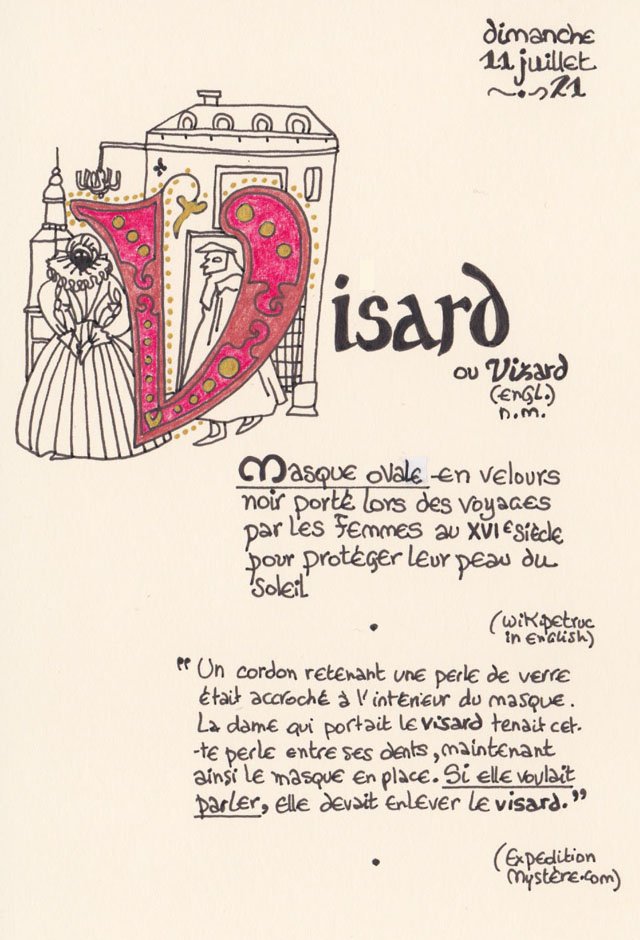 dimanche
11 juillet
21
Visard
ou Vizard
(-engl.)
n.m.
Masque ovale en velours
noir porté lors des voyages
par les femmes au XVIe siècle
pour protéger leur peau du
soleil
(wikipetruc
in english)
"Un cordon retenant une perle de verre
était accroché à l'intérieur du masque.
La dame qui portait le visard tenait cet-
-te perle entre ses dents, maintenant
ainsi le masque en place. Si elle voulait
parler, elle devait enlever le visard."
(Expedition
mystère.com)